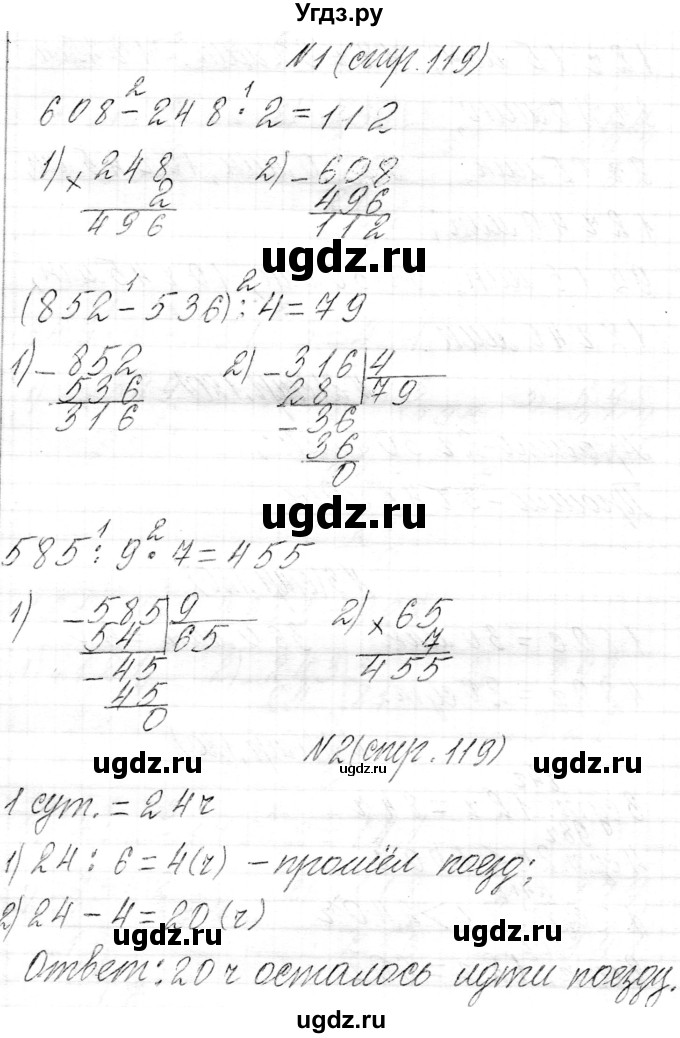 Угдз.ру
N1 (стр. 119)
2 1
608 - 248 : 2 = 112
1) × 248 2) - 608
2 496
496 112
ugdz.ru
1 2
(852 - 536) : 4 = 79
1) - 852 2) - 316 | 4
536 28 | 79
316 - 36
36
0
ugdz.ru
1 2
585 : 9 · 7 = 455
1) - 585 | 9 2) × 65
54 | 65 7
- 45 455
45
0
N2 (стр. 119)
ugdz.ru ugdz.ru ugdz.ru
1 сут. = 24 ч
1) 24 : 6 = 4 (ч) - прошёл поезд;
2) 24 - 4 = 20 (ч)
ugdz.ru ugdz.ru
Ответ: 20 ч осталось идти поезду.
ugdz.ru